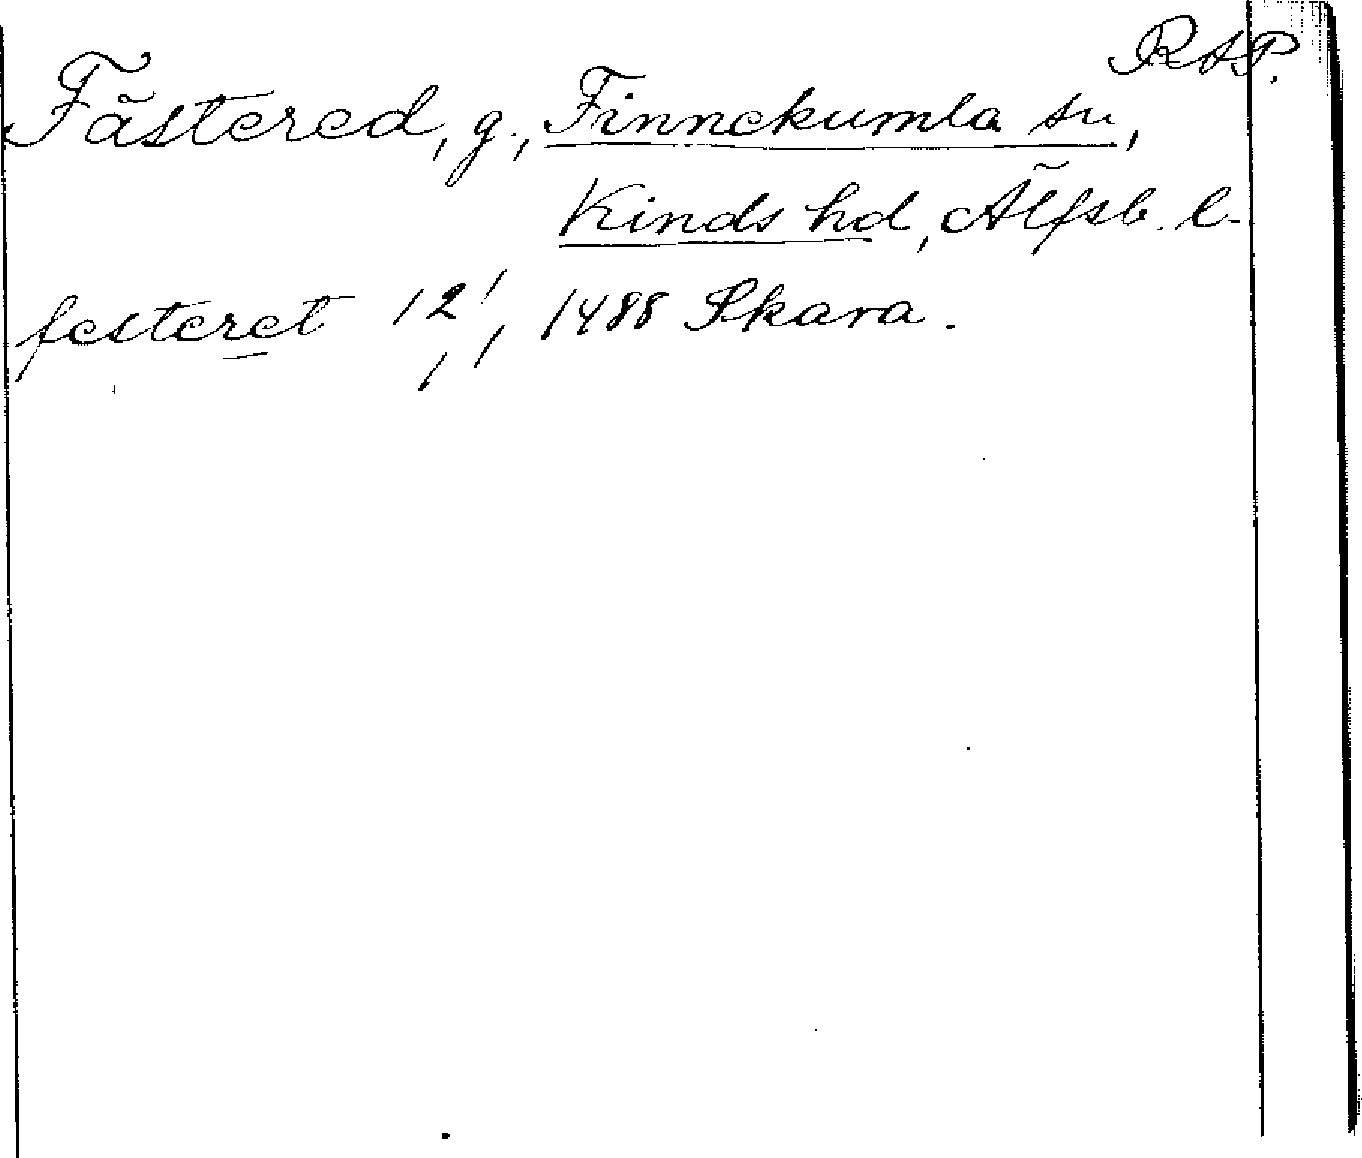 RAP.
Fästered, g., Finnekumla sn,
Kinds hd, Älfsb. l.
festeret 12/1, 1488 Skara.